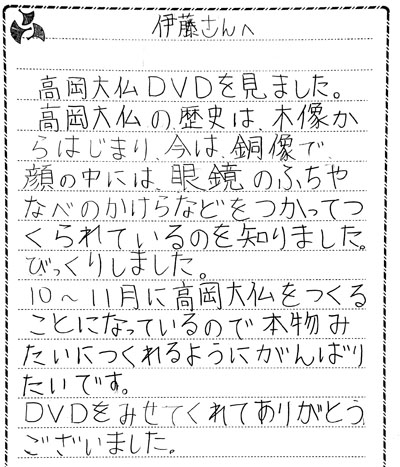 伊藤さんへ
高岡大仏DVDを見ました。
高岡大仏の歴史は、木像か
らはじまり、今は、銅像で、
顔の中には、眼鏡のふちや
なべのかけらなどをつかってつ
くられているのを知りました。
びっくりしました。
10～11月に高岡大仏をつくる
ことになっているので本物み
たいにつくれるようにがんばり
たいです。
DVDをみせてくれてありがとう
ございました。